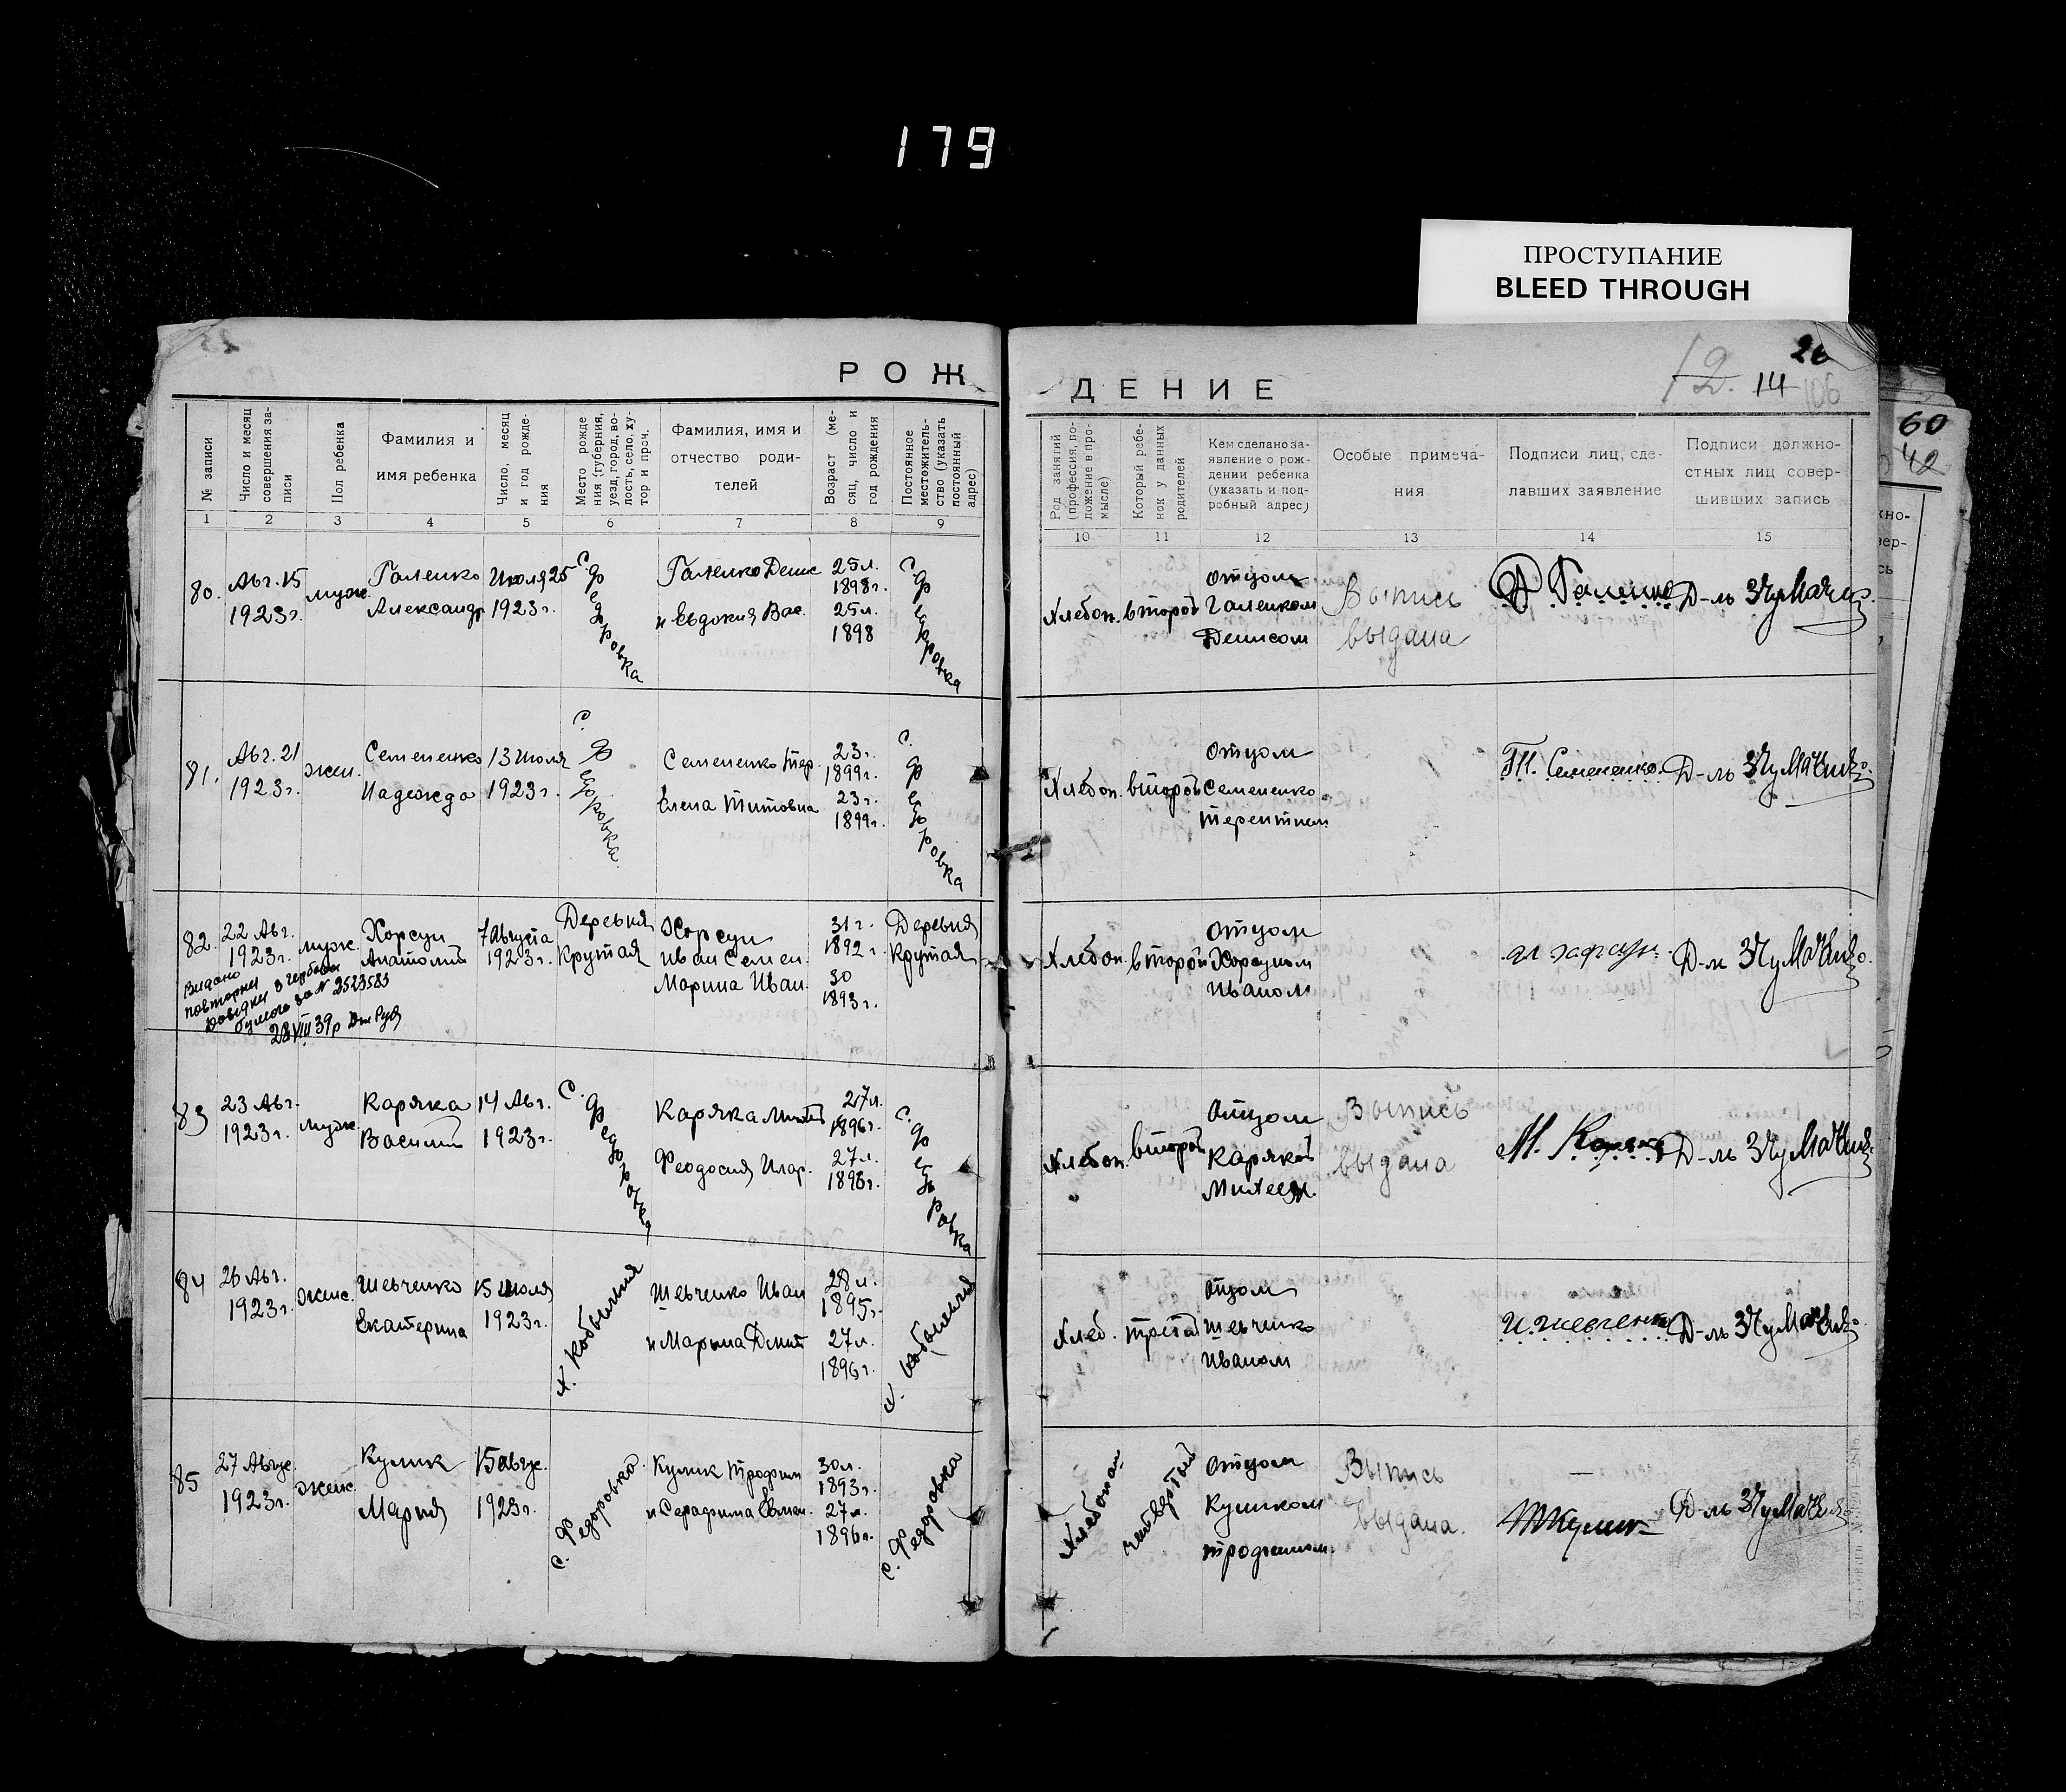 179
ПРОСТУПАНИЕ
BLEED THROUGH
26
12. 14 106
60
42
РОЖ
ДЕНИЕ
№ записи
Число и месяц совершения за-
писи
Пол ребенка
Фамилия и
имя ребенка
Число, месяц
и год рожде-
ния
Место рожде
ния (губерния,
уезд, город, во-
лость, село, ху-
тор и проч.
Фамилия, имя и
отчество роди-
телей
Возраст (ме-
сяц, число и
год рождения
Постоянное
местожитель-
ство (указать
постоянный
адрес)
Род занятий
(профессия, по-
ложение в про-
мысле)
Который ребе-
нок у данных
родителей
Кем сделано за-
явление о рож-
дении ребенка
(указать и под-
робный адрес)
Особые примеча-
ния
Подписи лиц, сде-
лавших заявление
Подписи должно-
стных лиц совер-
шивших запись
1 2 3 4 5 6 7 8 9
10 11 12 13 14 15
80.
Авг. 15
1923г.
муж.
Галенко
Александр
Июля 25
1923г.
с. Федоровка
Галенко Денис
и Евдокия Вас.
25л.
1898г.
25л.
1898
с. Федоровка
Хлебоп.
второй
Отцом
Галенком
Денисом
Выпись
выдана
Д. Галенко
Д-ль ЗЧумач
81.
Авг. 21
1923г.
жен.
Семененко
Надежда
13 июля
1923г.
с. Федоровка.
Семененко Тер.
Елена Титовна
23г.
1899г.
23г.
1899г.
с. Федоровка
Хлебоп.
второй
Отцом
Семененко
Терентием
Т. Семененко.
Д-ль ЗЧумач
82.
22 Авг.
1923г.
муж.
Хорсун
Анатолий
7 Августа
1923г.
Деревня
Крутая
Хорсун
Иван Семен.
Марина Иван.
31г.
1892г.
30
1893г.
Деревня
Крутая
Видано
повторну
довідку з гербов.
бумаго за № 2523583
28 VIII 39р
Хлебоп.
второй
Отцом
Хорсуном
Иваном
Д-ль ЗЧумач
83
23 Авг.
1923г.
муж.
Каряка
Василий
14 Авг.
1923г.
с. Федоровка
Каряка Михей
Феодосия Илар.
27л.
1896г.
27л.
1896г.
с. Федоровка
Хлебоп.
второй
Отцом
Карякой
Михеем.
Выпись
выдана
М. Каряка
Д-ль ЗЧумач
84
26 Авг.
1923г.
женс.
Шевченко
Екатерина
15 июля
1923г.
Шевченко Иван
и Марина Дмит
28л.
1895г.
27л.
1896г.
Хлеб.
третий
Отцом
Шевченко
Иваном
И. Шевченко
Д-ль ЗЧумач
85
27 Авгус.
1923г.
женс.
Кулик
Мария
15 Авгус.
1923г.
с. Федоровка
Кулик Трофим
и Серафима
30л.
1893г.
27л.
1896г.
с. Федоровка
Хлебопаш
четвертый
Отцом
Куликом
Трофимом.
Выпись
выдана.
ТКулик
Д-ль ЗЧумач